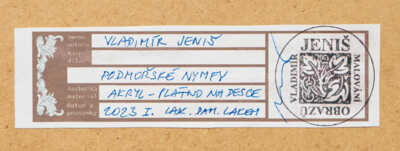 VLADIMÍR JENIŠ
PODMOŘSKÉ NYMFY
AKRYL - PLÁTNO NA DESCE
2023 I. LAK. DAM. LAKEM
JENIŠ
VLADIMÍR
MALOVÁNÍ
OBRAZŮ